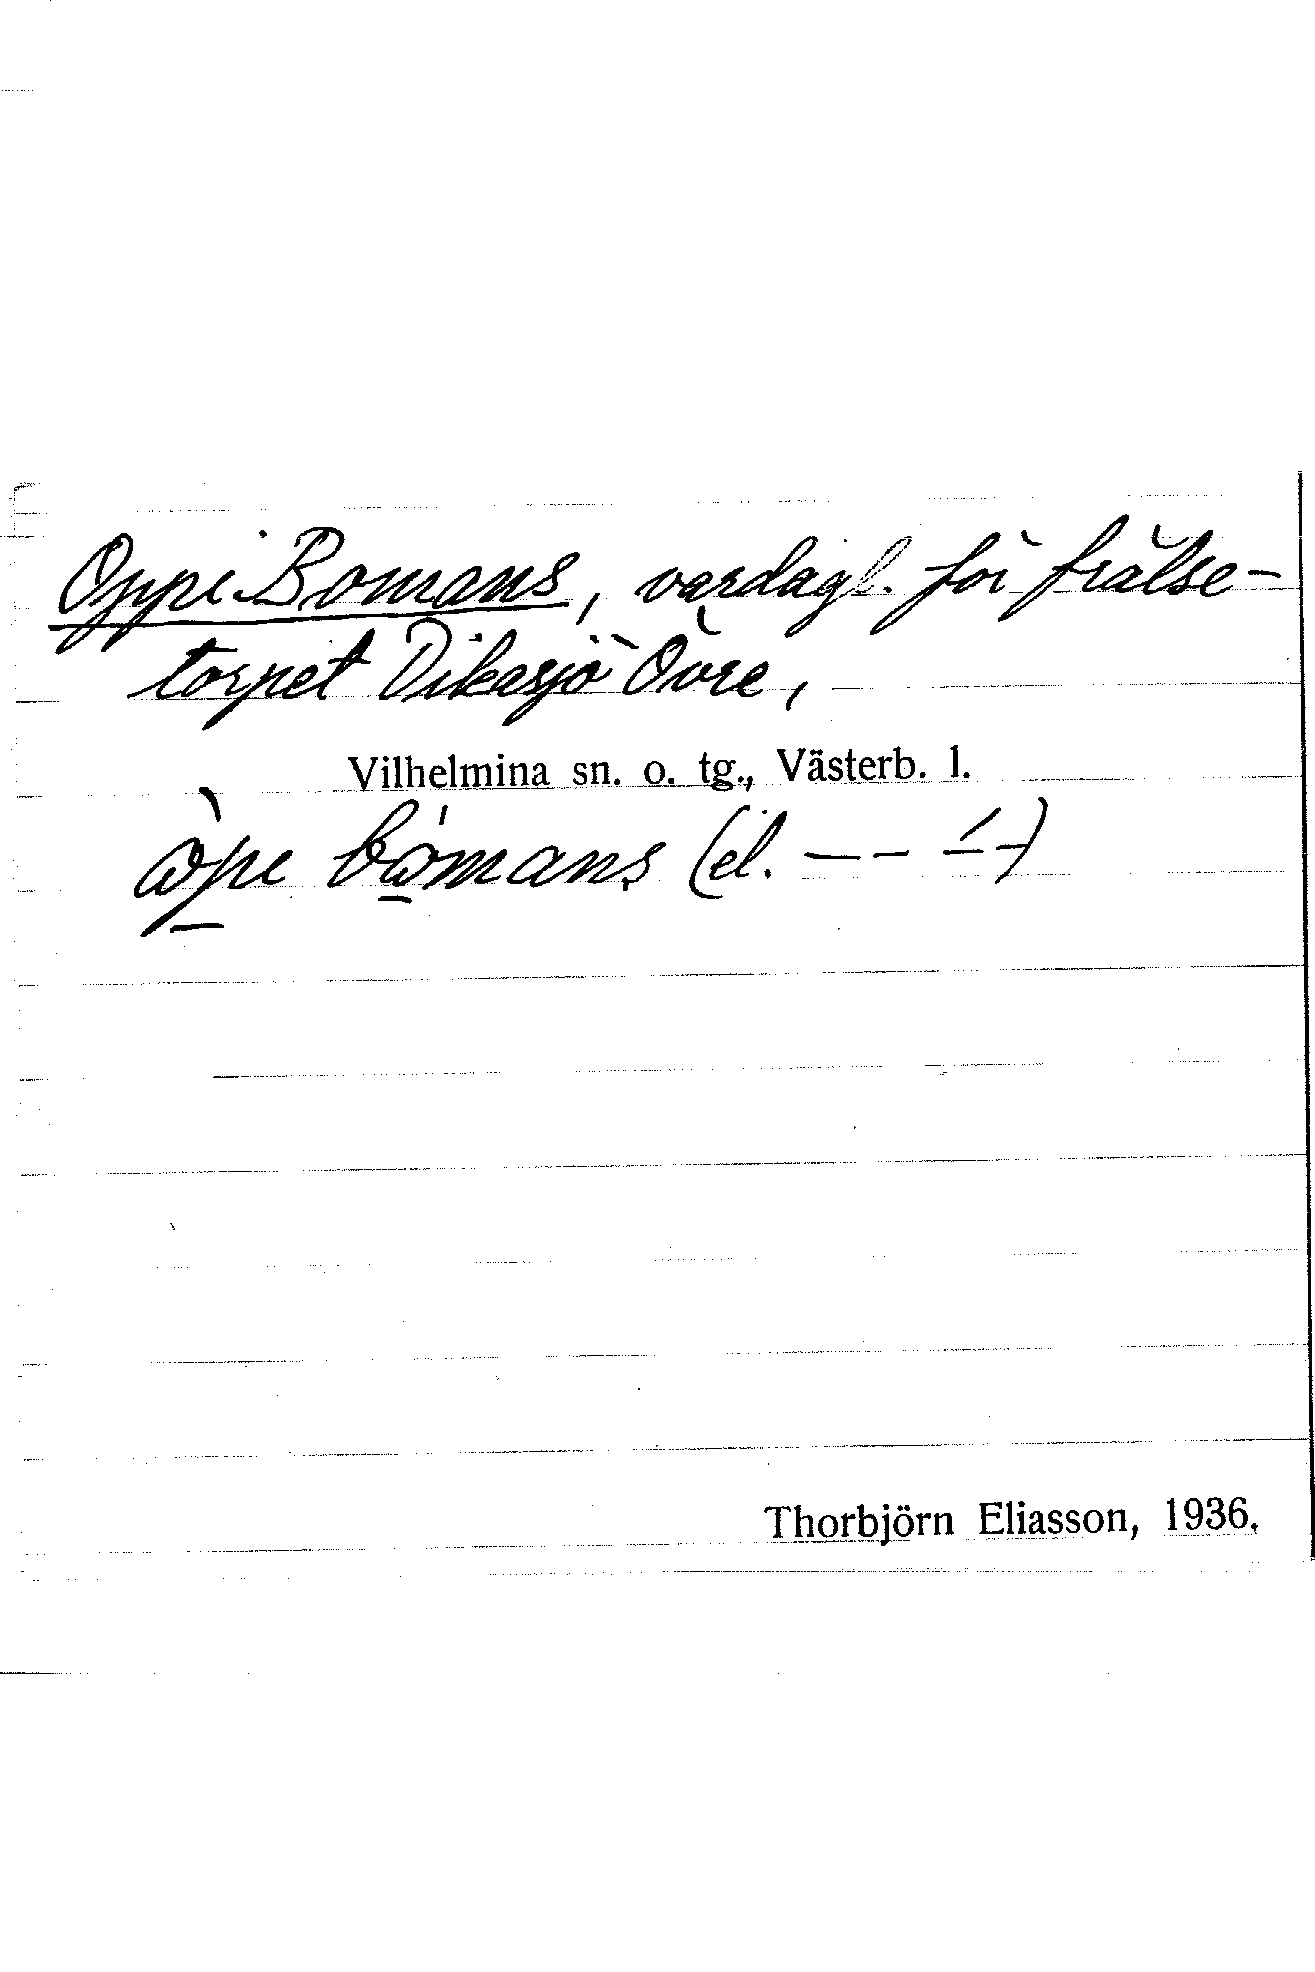 Oppi Bomans, vardagl. för frälse-
torpet Dikasjö Övre,
Vilhelmina sn. o. tg., Västerb. l.
òpe bómans (el. – – –́ –)
Thorbjörn Eliasson, 1936.